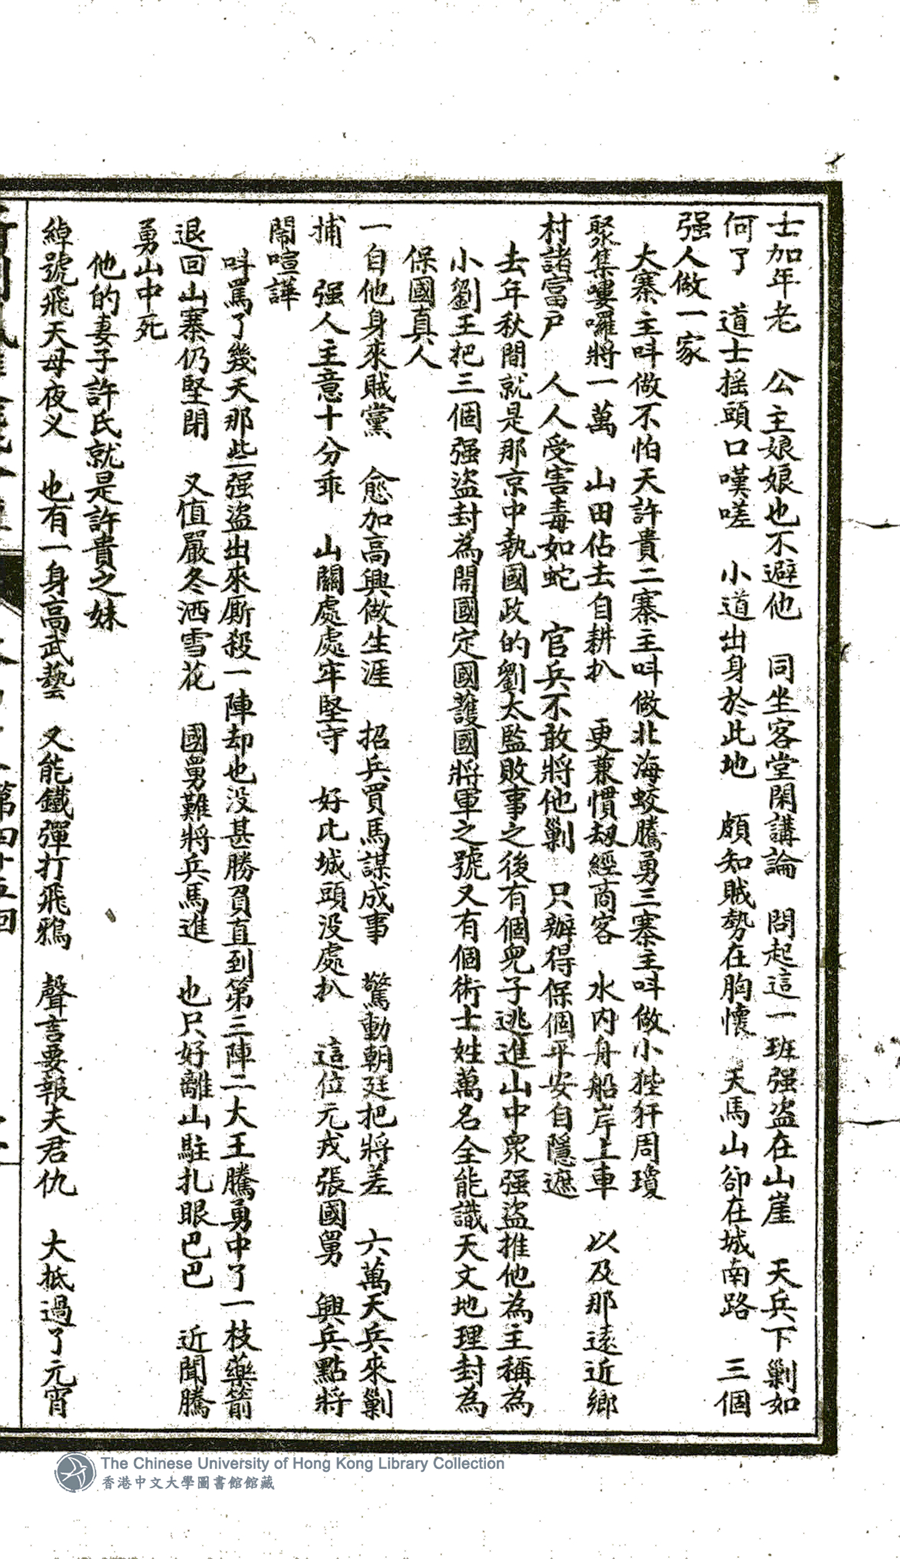 士加年老　公主娘娘也不避他　同坐客堂閑講論　問起這一班强盗在山崖　天兵下剿如
何了　道士摇頭口嘆嗟　小道出身於此地　頗知賊勢在胸懷　天馬山卻在城南路　三個
强人做一家
大寨主呌做不怕天許貴二寨主呌做北海蛟騰勇三寨主呌做小狴犴周瓊
聚集嘍囉將一萬　山田佔去自耕扒　更兼慣刼經商客　水内舟船岸上車　以及那遠近鄉
村諸富户　人人受害毒如蛇　官兵不敢將他剿　只辦得保個平安自隱遮
去年秋間就是那京中執國政的劉太監敗事之後有個兒子逃進山中衆强盗推他為主稱為
小劉王把三個强盗封為開國定國護國將軍之號又有個術士姓萬名全能識天文地理封為
保國真人
一自他身來賊黨　愈加高興做生涯　招兵買馬謀成事　驚動朝廷把將差　六萬天兵來剿
捕　强人主意十分乖　山關處處牢堅守　好比城頭没處扒　這位元戎張國舅　興兵點將
鬧喧譁
呌罵了幾天那些强盗出來厮殺一陣却也没甚勝負直到第三陣二大王騰勇中了一枝藥箭
退回山寨仍堅閉　又值嚴冬洒雪花　國舅難將兵馬進　也只好離山駐扎眼巴巴　近聞騰
勇山中死
他的妻子許氏就是許貴之妹
綽號飛天母夜义　也有一身高武藝　又能鐵彈打飛鴉　聲言要報夫君仇　大抵過了元宵
第四十五回
The Chinese University of Hong Kong Library Collection
香港中文大學圖書館館藏